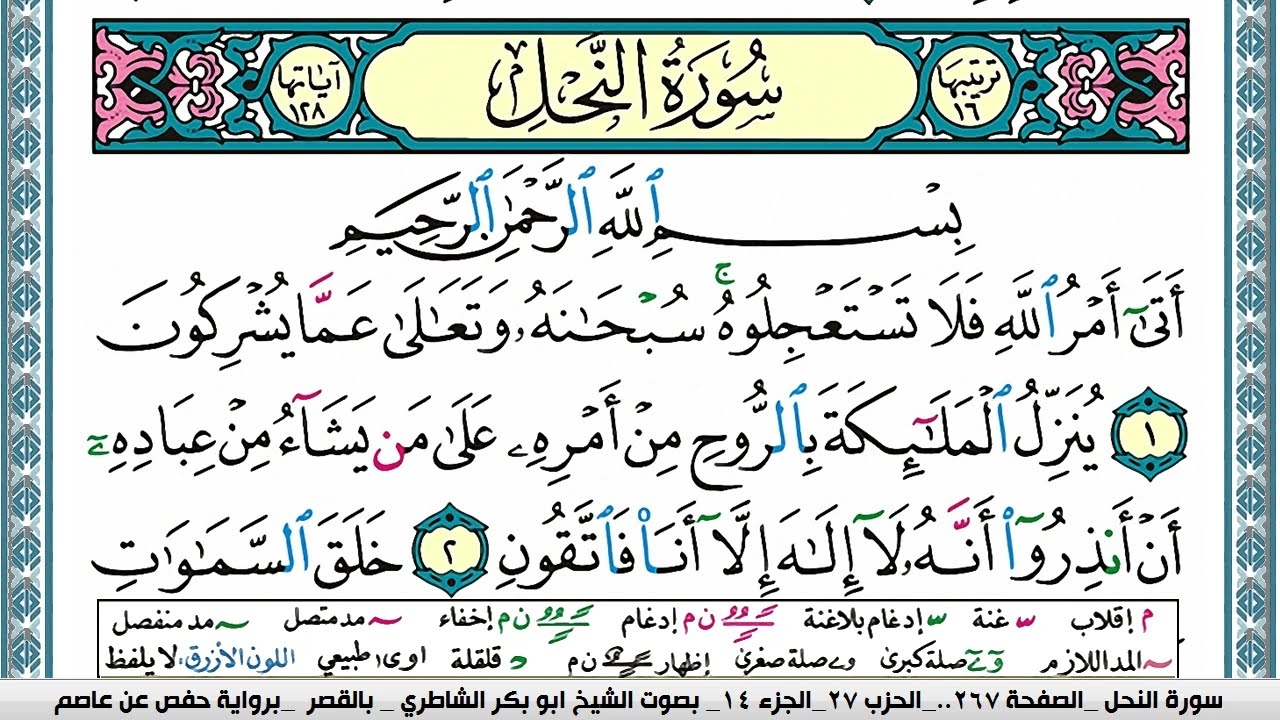 ترتيبها ١٦ سُورَةُ النَّحْلِ آياتها ١٢٨
بِسْمِ ٱللَّهِ ٱلرَّحْمَٰنِ ٱلرَّحِيمِ
أَتَىٰٓ أَمْرُ ٱللَّهِ فَلَا تَسْتَعْجِلُوهُ ۚ سُبْحَٰنَهُۥ وَتَعَٰلَىٰ عَمَّا يُشْرِكُونَ
١ يُنَزِّلُ ٱلْمَلَٰٓئِكَةَ بِٱلرُّوحِ مِنْ أَمْرِهِۦ عَلَىٰ مَن يَشَآءُ مِنْ عِبَادِهِۦٓ
أَنْ أَنذِرُوٓا۟ أَنَّهُۥ لَآ إِلَٰهَ إِلَّآ أَنَا۠ فَٱتَّقُونِ ٢ خَلَقَ ٱلسَّمَٰوَٰتِ
م إقلاب غنة إدغام بلاغنة ن م إدغام ن م إخفاء مد متصل مد منفصل
المد اللازم صلة كبرى صلة صغرى إظهار ن م قلقلة اوى طبيعي اللون الأزرق: لا يلفظ
سورة النحل _الصفحة ٢٦٧.._الحزب ٢٧_الجزء ١٤_ بصوت الشيخ ابو بكر الشاطري _ بالقصر _برواية حفص عن عاصم